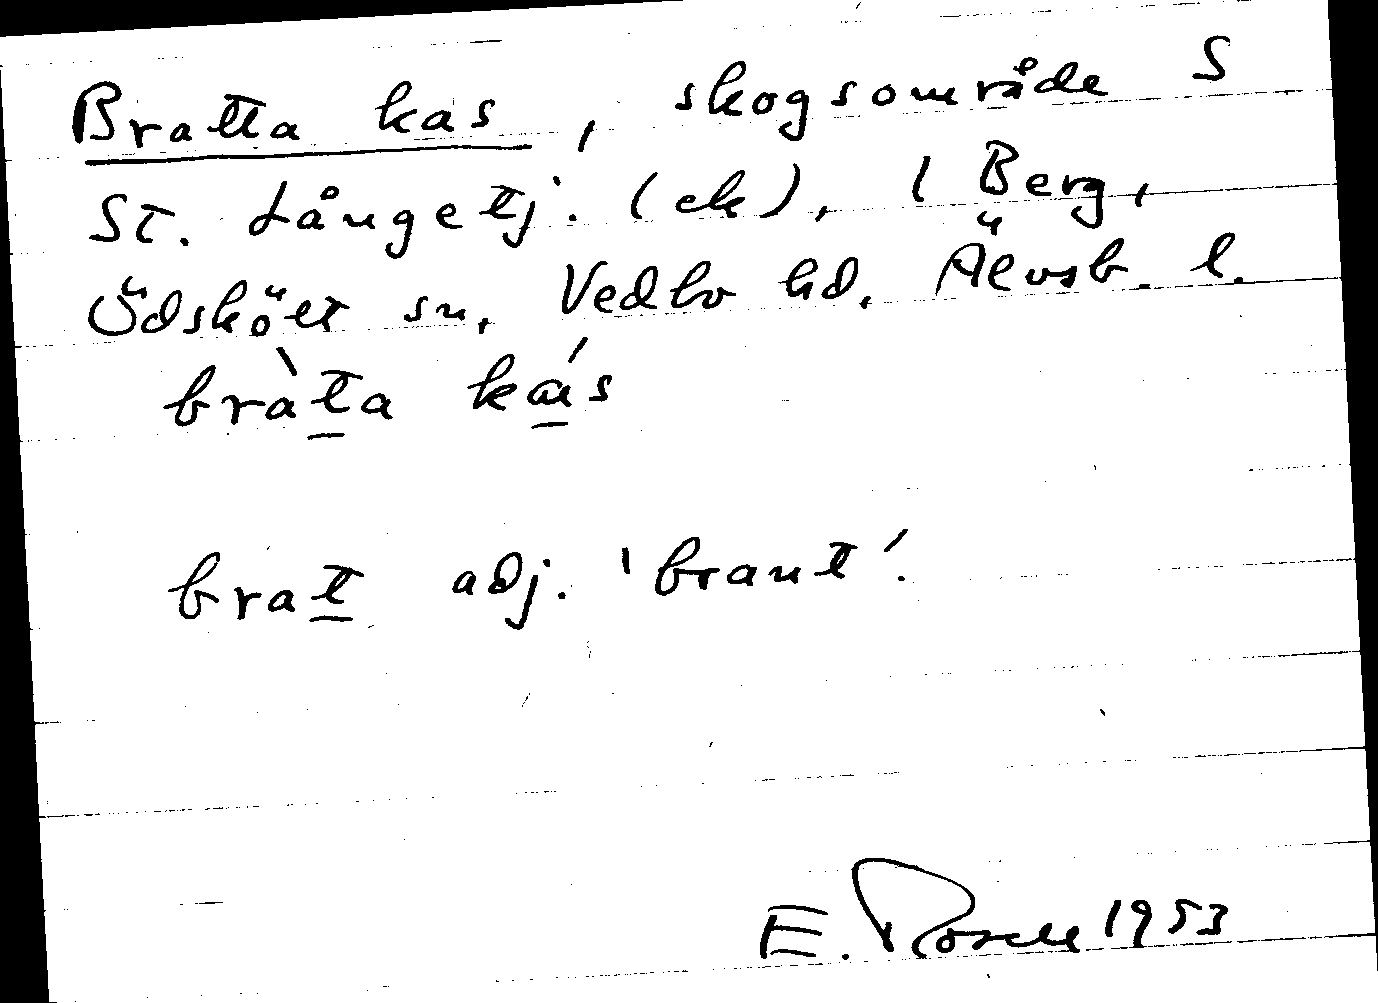 Bratta kas, skogsområde S
St. Långetj. (ek), i Berg,
Ödskölt sn, Vedbo hd. Älvsb. l.
bràta kás
brat adj. 'brant'.
E. Rosell 1953